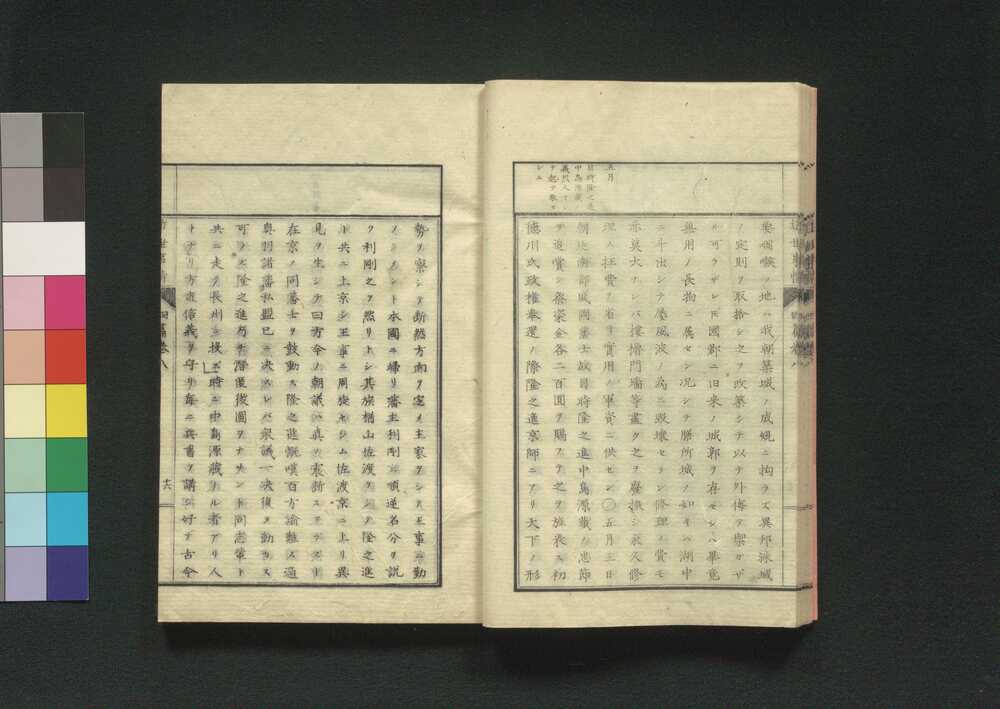 五月
目時隆之進
中島源蔵
義烈人ヲ
シテ起テ敬セ
シム
要咽喉ノ地ハ我朝築城ノ成規ニ拘ラズ異邦氷城
ノ定則ヲ取捨シ之ヲ改築シテ以テ外侮ヲ禦ガザ
ル可ラザレドモ國郡ニ旧来ノ城郭ヲ存セシハ畢竟
無用ノ長物ニ属セン况シテ膳所城ノ如キハ湖中
ニ斗出シテ屡風波ノ為ニ毀壊セラレ修理ノ費モ
亦莫大ナレバ楼櫓門墻等盡ク之ヲ廢撤シ永久修
理ノ冗費ヲ省キ實用ノ軍資ニ供セン〇五月三日
朝廷南部藩國藩士故目時隆之進中島源蔵ノ忠節
ヲ追賞シ祭粢金各二百圓ヲ賜フテ之ヲ旌表ス初
徳川氏政権奉還ノ際隆之進京師ニアリ天下ノ形
勢ヲ察シテ断然方向ヲ定メ主家ヲシテ王事ニ勤
メシメント本國ニ帰リ藩主利剛ニ順逆名分ヲ説
ク利剛之ヲ然リトシ其族楢山佐渡ヲシテ隆之進
ト共ニ上京シ王事ニ周旋セシム佐渡京ニ上リ異
見ヲ生シテ曰方今ノ朝議ハ真ノ宸断ニアラズト
在京ノ同藩士ヲ鼓動ス隆之進慨嘆百方諭難ス適
奥羽諸藩私盟已ニ決スレバ衆議一決復タ動カス
可ラズ隆之進乃チ潜匿後圖ヲナサント同志輩ト
共ニ走テ長州ニ投ズ時ニ中島源蔵ナル者アリ人
トナリ方直信義ヲ守リ毎ニ兵書ヲ講シ好テ古今
近世事情 四篇巻八
十六